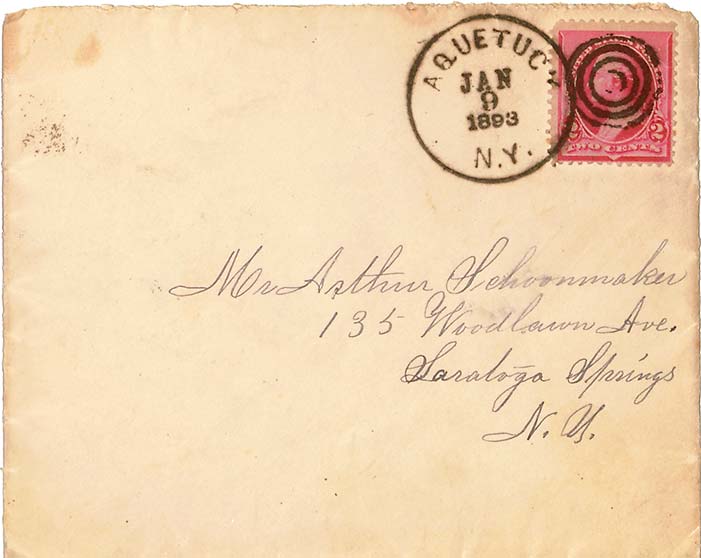 AQUETUCK
JAN
9
1893
N.Y.
2 2
TWO CENTS
Mr Arthur Schoonmaker
135 Woodlawn Ave.
Saratoga Springs
N. Y.